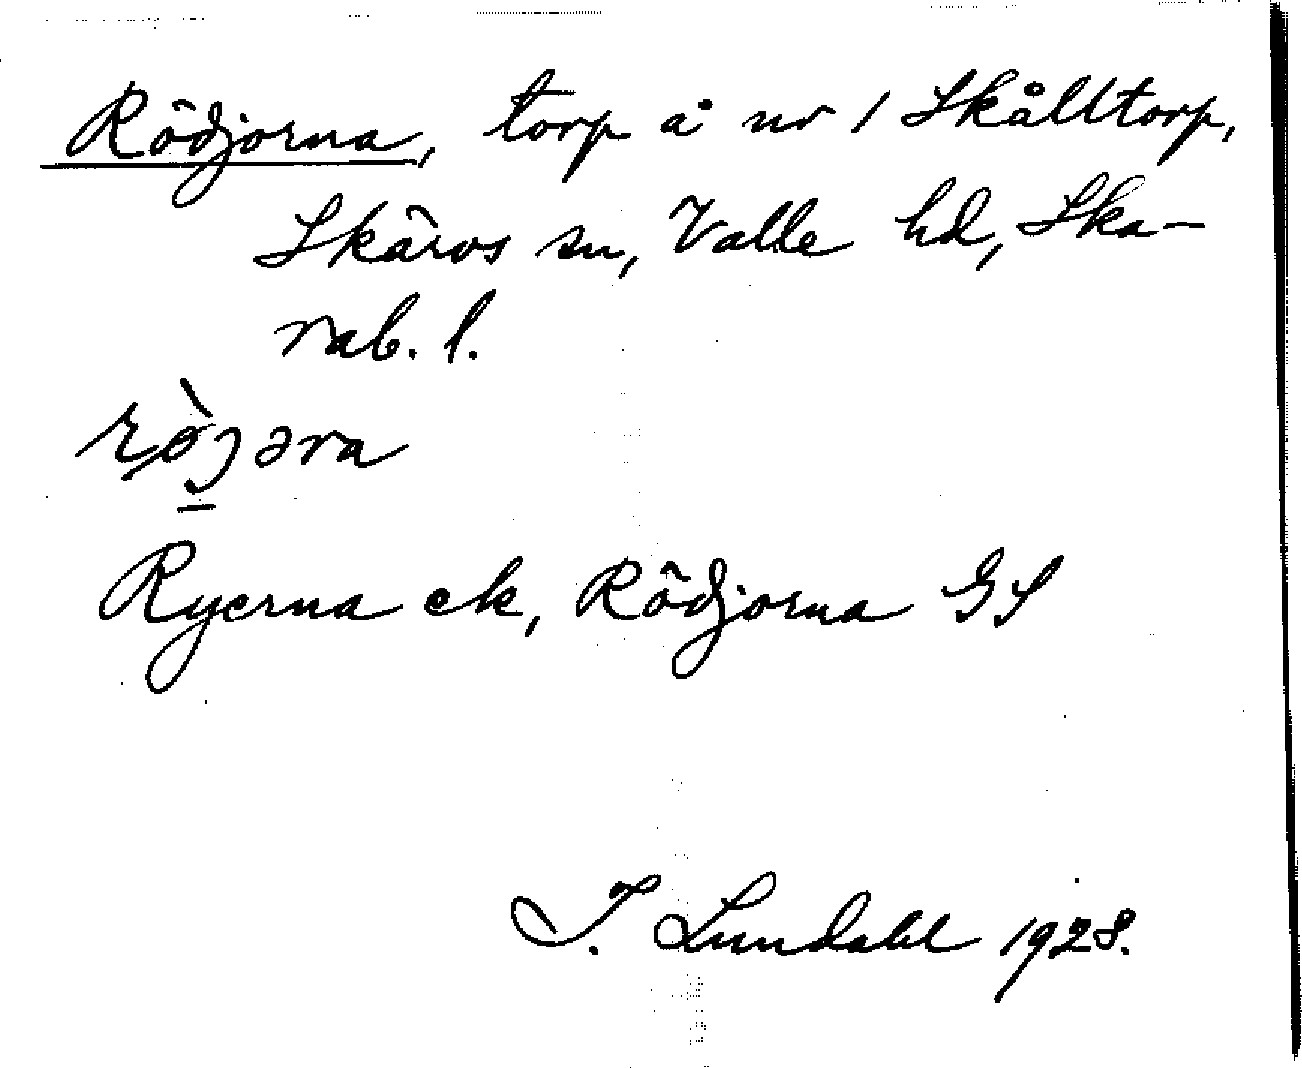 Rödjorna, torp å nr 1 Skålltorp,
Skärvs sn, Valle hd, Ska-
rab. l.
Ryerna ek, Rödjorna GS
I. Lundahl 1928.